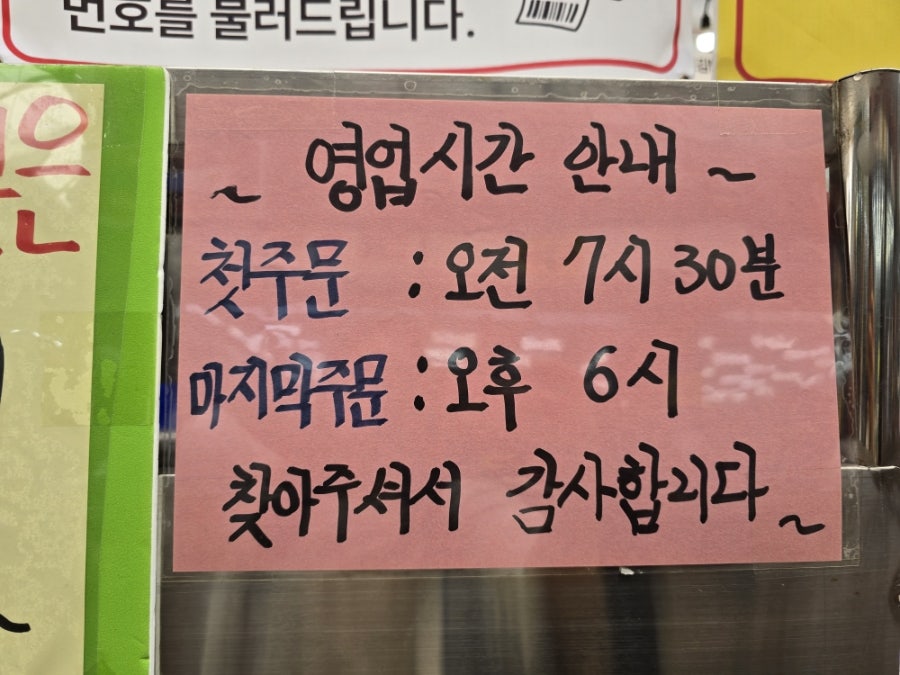 번호를 불러드립니다.
~ 영업시간 안내 ~
첫주문 : 오전 7시 30분
마지막주문 : 오후 6시
찾아주셔서 감사합니다~